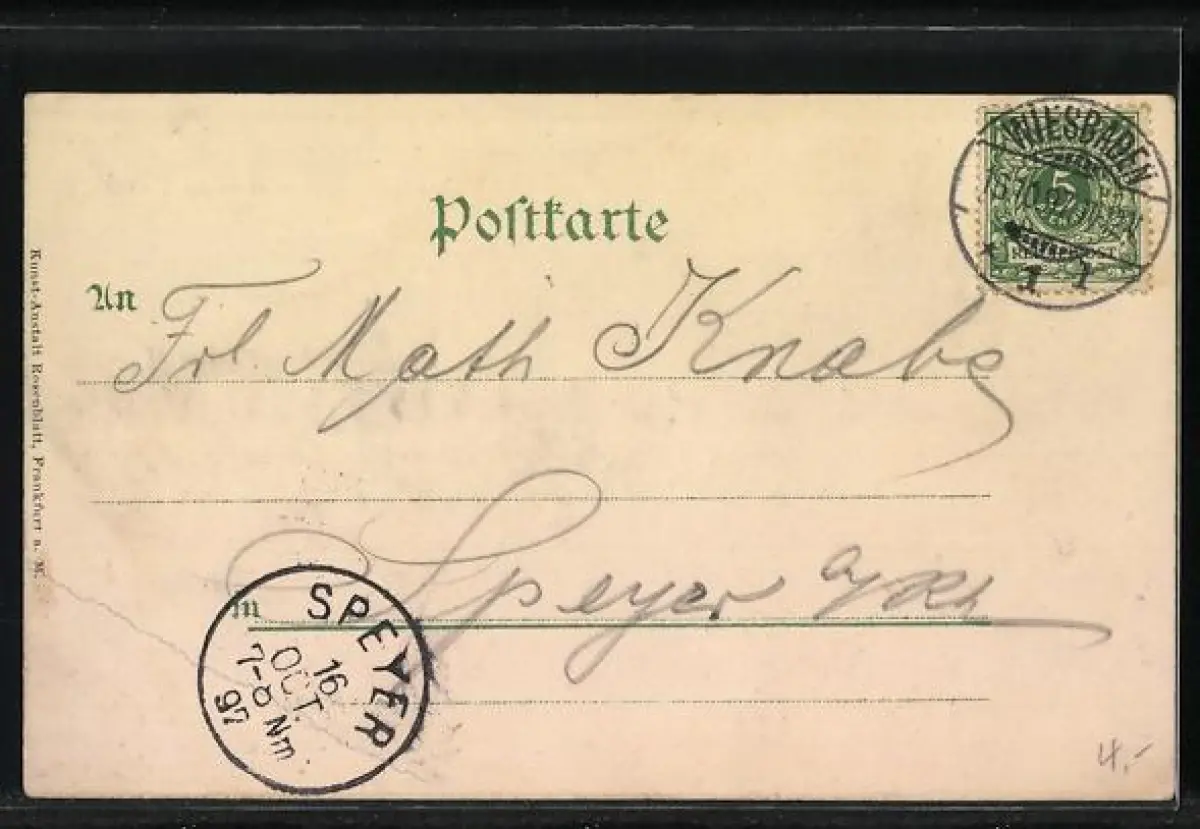 Postkarte
An
Frl. Math Knabe
in Speyer a/Rh
Kunst-Anstalt Rosenblatt, Frankfurt a. M.
WIESBADEN
5
REICHSPOST
* 1 1
SPEYER
16
OCT.
7-8 Nm.
97
4.-